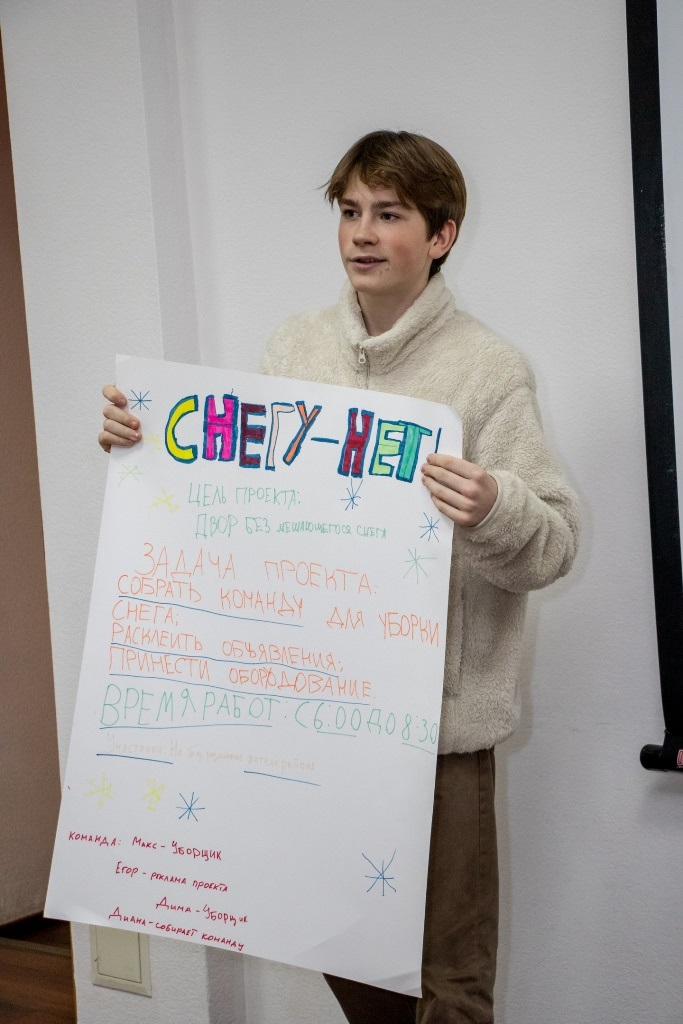 СНЕГУ-НЕТ!
ЦЕЛЬ ПРОЕКТА:
ДВОР БЕЗ МЕШАЮЩЕГОСЯ СНЕГА
ЗАДАЧА ПРОЕКТА:
СОБРАТЬ КОМАНДУ ДЛЯ УБОРКИ
СНЕГА;
РАСКЛЕИТЬ ОБЪЯВЛЕНИЯ;
ПРИНЕСТИ ОБОРУДОВАНИЕ.
ВРЕМЯ РАБОТ: С 6:00 ДО 8:30
Участники: Не
КОМАНДА: МАКС-УБОРЩИК
ЕГОР-РЕКЛАМА ПРОЕКТА
ДИМА-УБОРЩИК
ДИАНА-СОБИРАЕТ КОМАНДУ